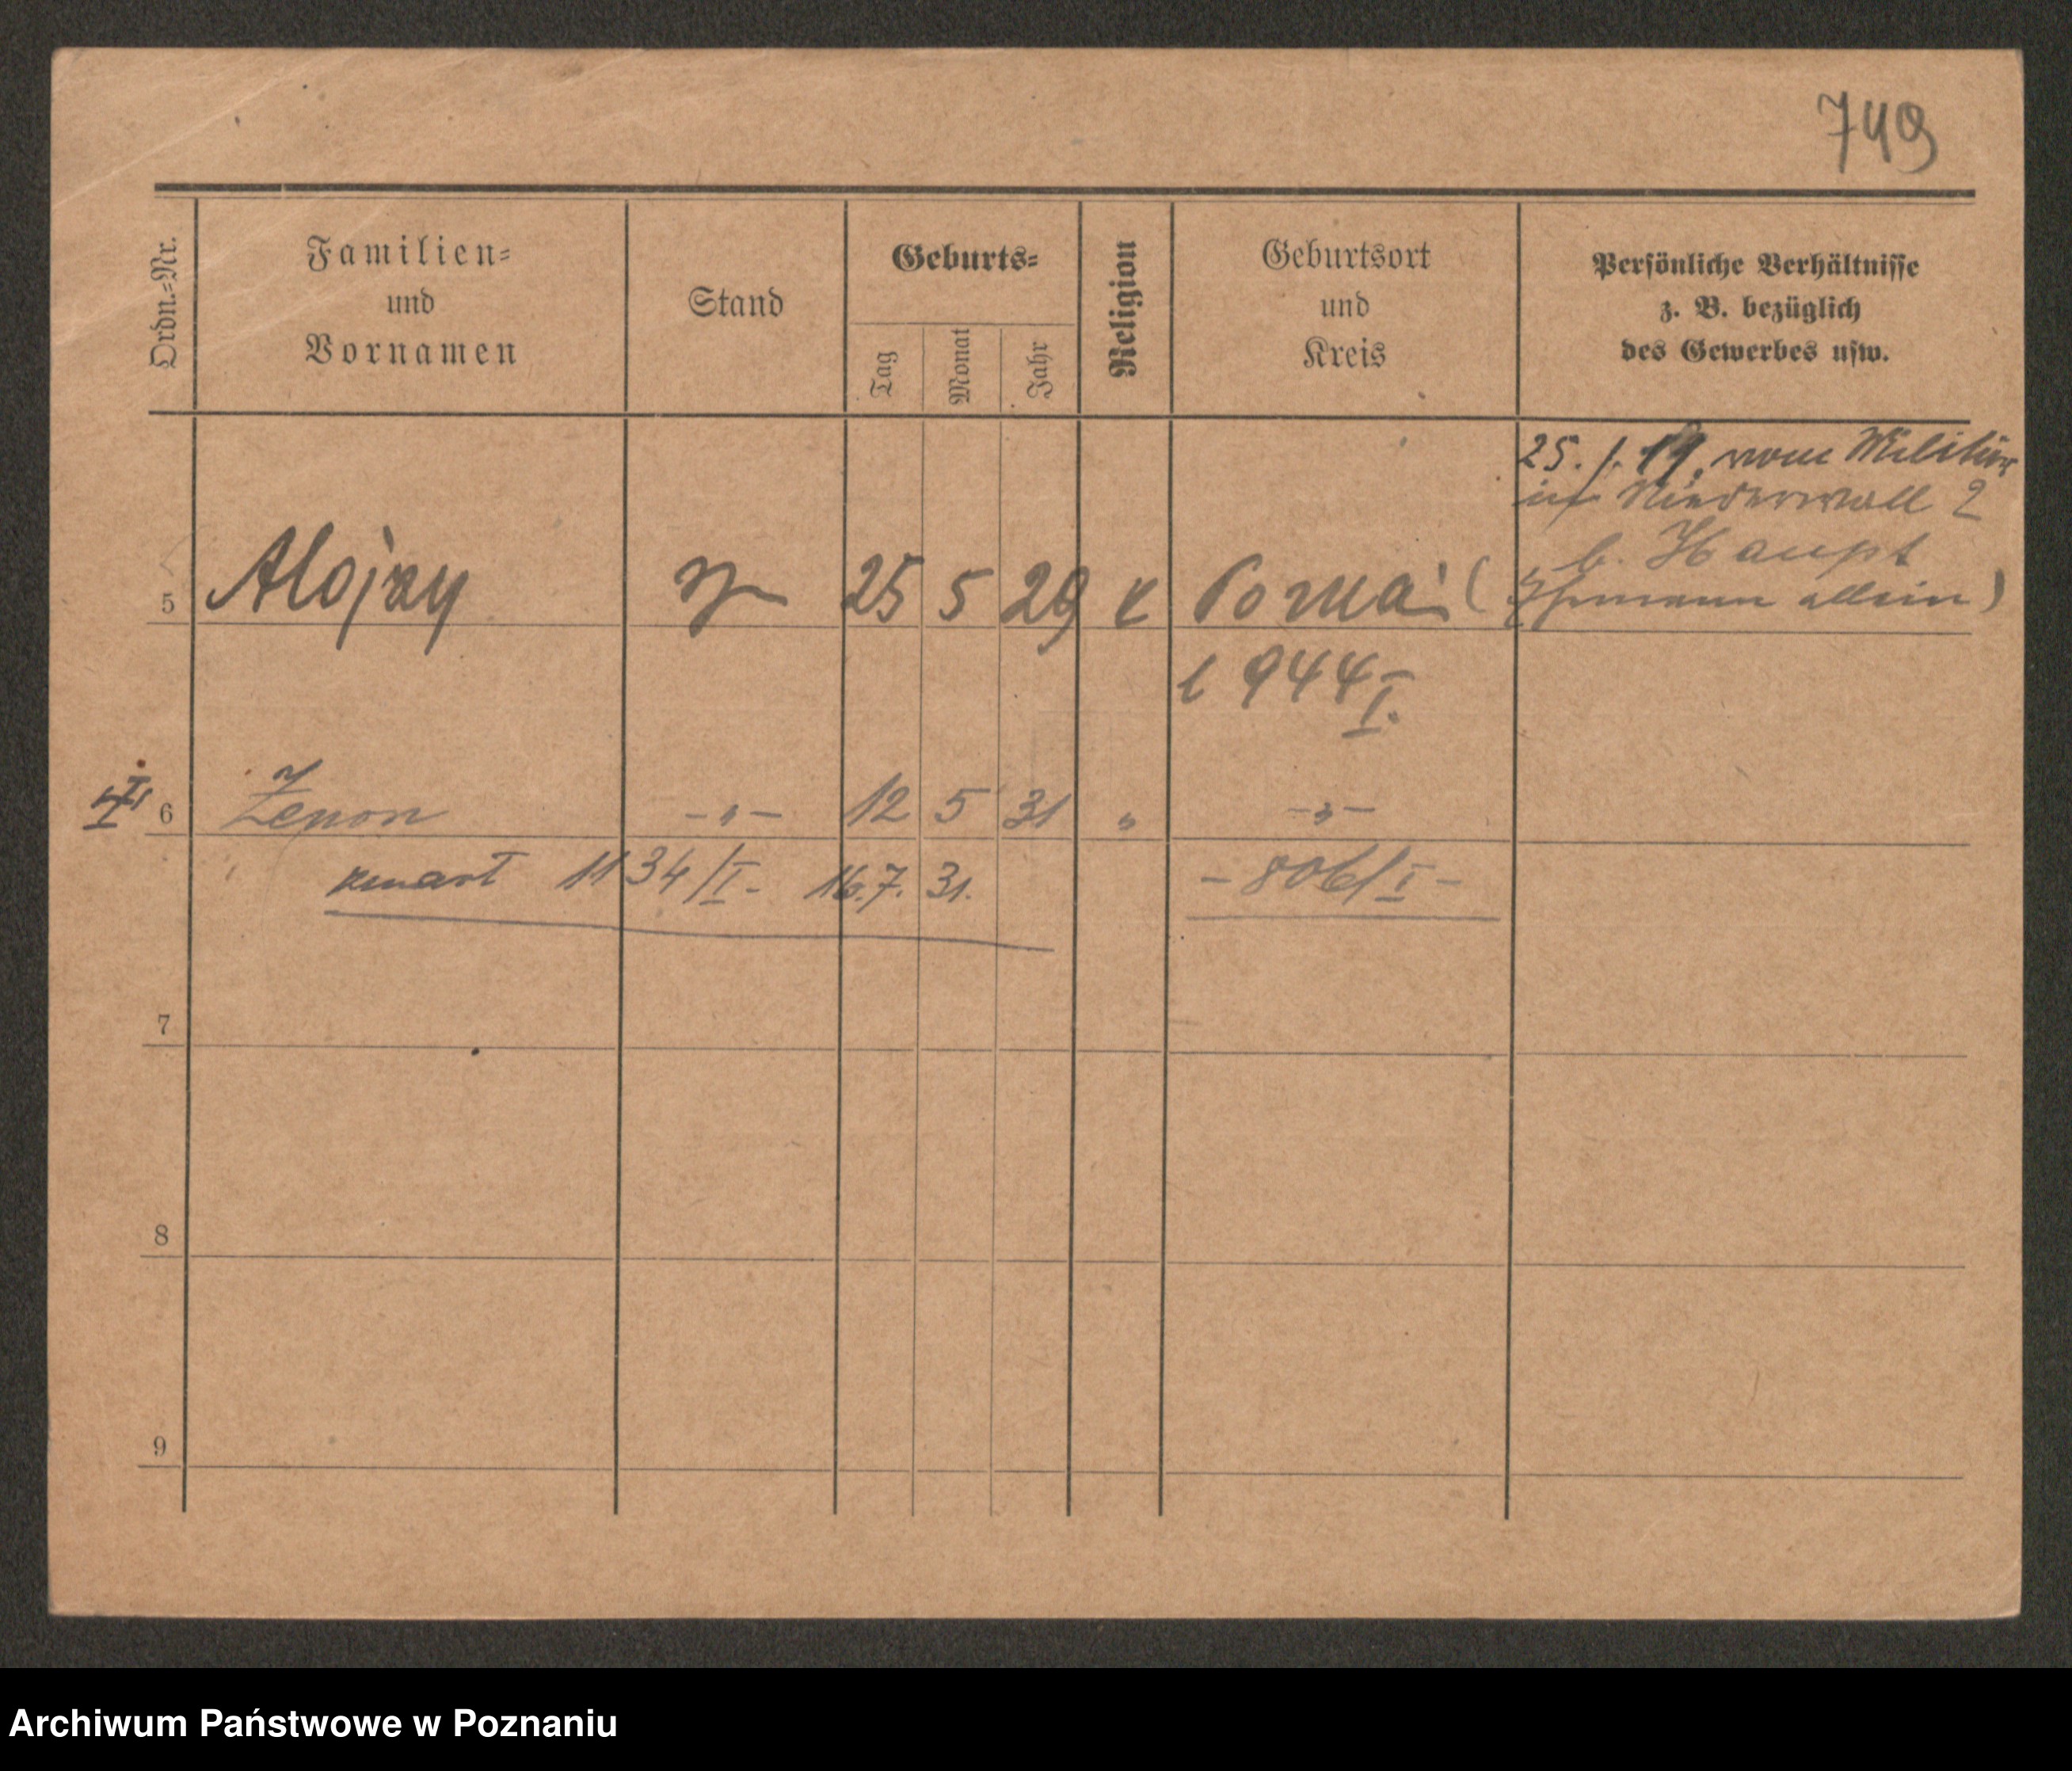 749
Ordn.=Nr.
Familien=
und
Vornamen
Stand
Geburts=
Tag
Monat
Jahr
Religion
Geburtsort
und
Kreis
Persönliche Verhältnisse
z. B. bezüglich
des Gewerbes usw.
25. 1. 19. vom Militär
in Niederwall 2
b. Haupt
(Ehemann allein)
5 Alojzy 25 5 29 k Poznań
l 944 I.
6 Zenon -„- 12 5 31 „ -„-
zmarł 1134/I- 16.7.31. -806/I-
7
8
9
Archiwum Państwowe w Poznaniu